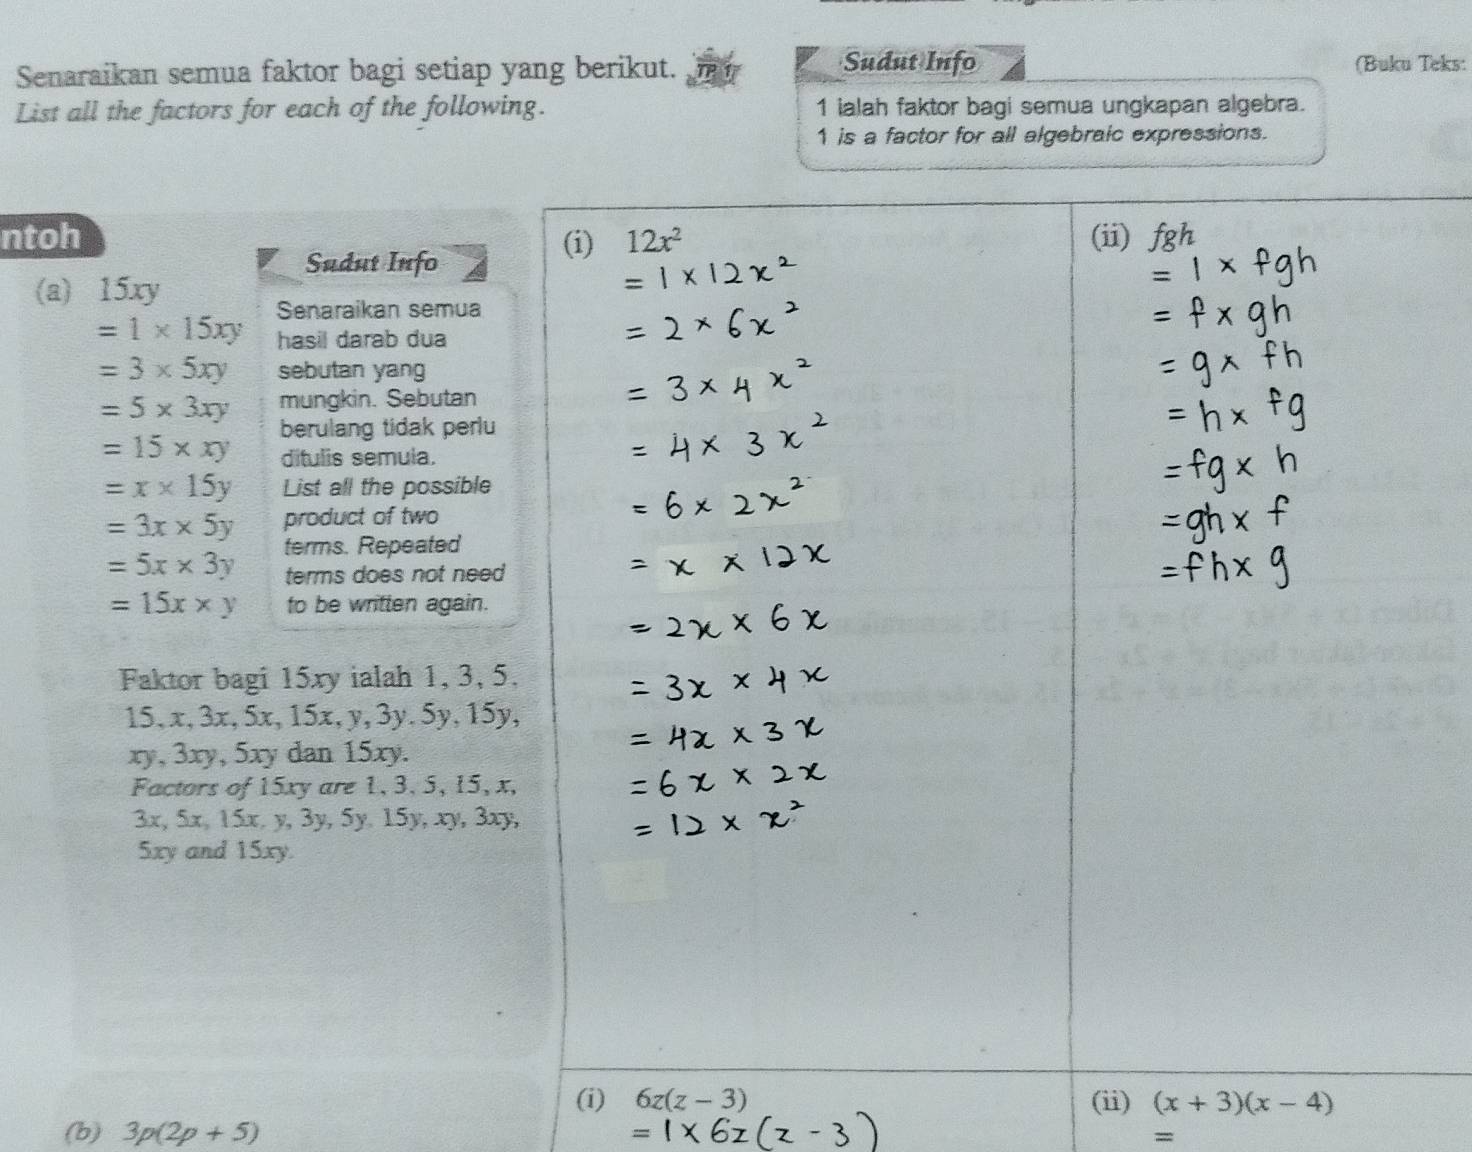 Senaraikan semua faktor bagi setiap yang berikut. TP 1
List all the factors for each of the following.
Sudut Info
1 ialah faktor bagi semua ungkapan algebra.
1 is a factor for all algebraic expressions.
(Buku Teks:
ntoh
(a) 15xy
= 1 × 15xy
= 3 × 5xy
= 5 × 3xy
= 15 × xy
= x × 15y
= 3x × 5y
= 5x × 3y
= 15x × y
Sudut Info
Senaraikan semua
hasil darab dua
sebutan yang
mungkin. Sebutan
berulang tidak perlu
ditulis semula.
List all the possible
product of two
terms. Repeated
terms does not need
to be written again.
Faktor bagi 15xy ialah 1, 3, 5,
15, x, 3x, 5x, 15x, y, 3y, 5y, 15y,
xy, 3xy, 5xy dan 15xy.
Factors of 15xy are 1, 3, 5, 15, x,
3x, 5x, 15x, y, 3y, 5y, 15y, xy, 3xy,
5xy and 15xy.
(i) 12x²
= 1 × 12x²
= 2 × 6x²
= 3 × 4x²
= 4 × 3x²
= 6 × 2x²
= x × 12x
= 2x × 6x
= 3x × 4x
= 4x × 3x
= 6x × 2x
= 12 × x²
(ii) fgh
= 1 × fgh
= f × gh
= g × fh
= h × fg
= fg × h
= gh × f
= fh × g
(b) 3p(2p + 5)
(i) 6z(z − 3)
= 1 × 6z(z − 3)
(ii) (x + 3)(x − 4)
=